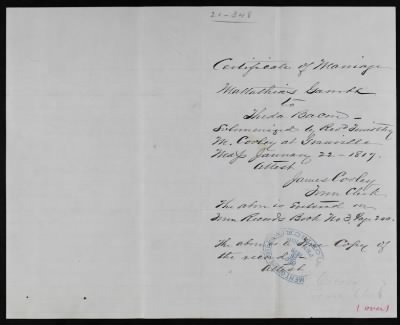 20-348
Certificate of Marriage
Mattathias Gamble
to
Theda Bacon -
Solemnized by Revd Timothy
M. Cooley at Granville
Mass January 22 - 1817.
Attest
James Cooley
Town Clerk
The above is Entered in
Town Records Book No 3, Page 200.
The above is a True Copy of
the record
Attest
(over)